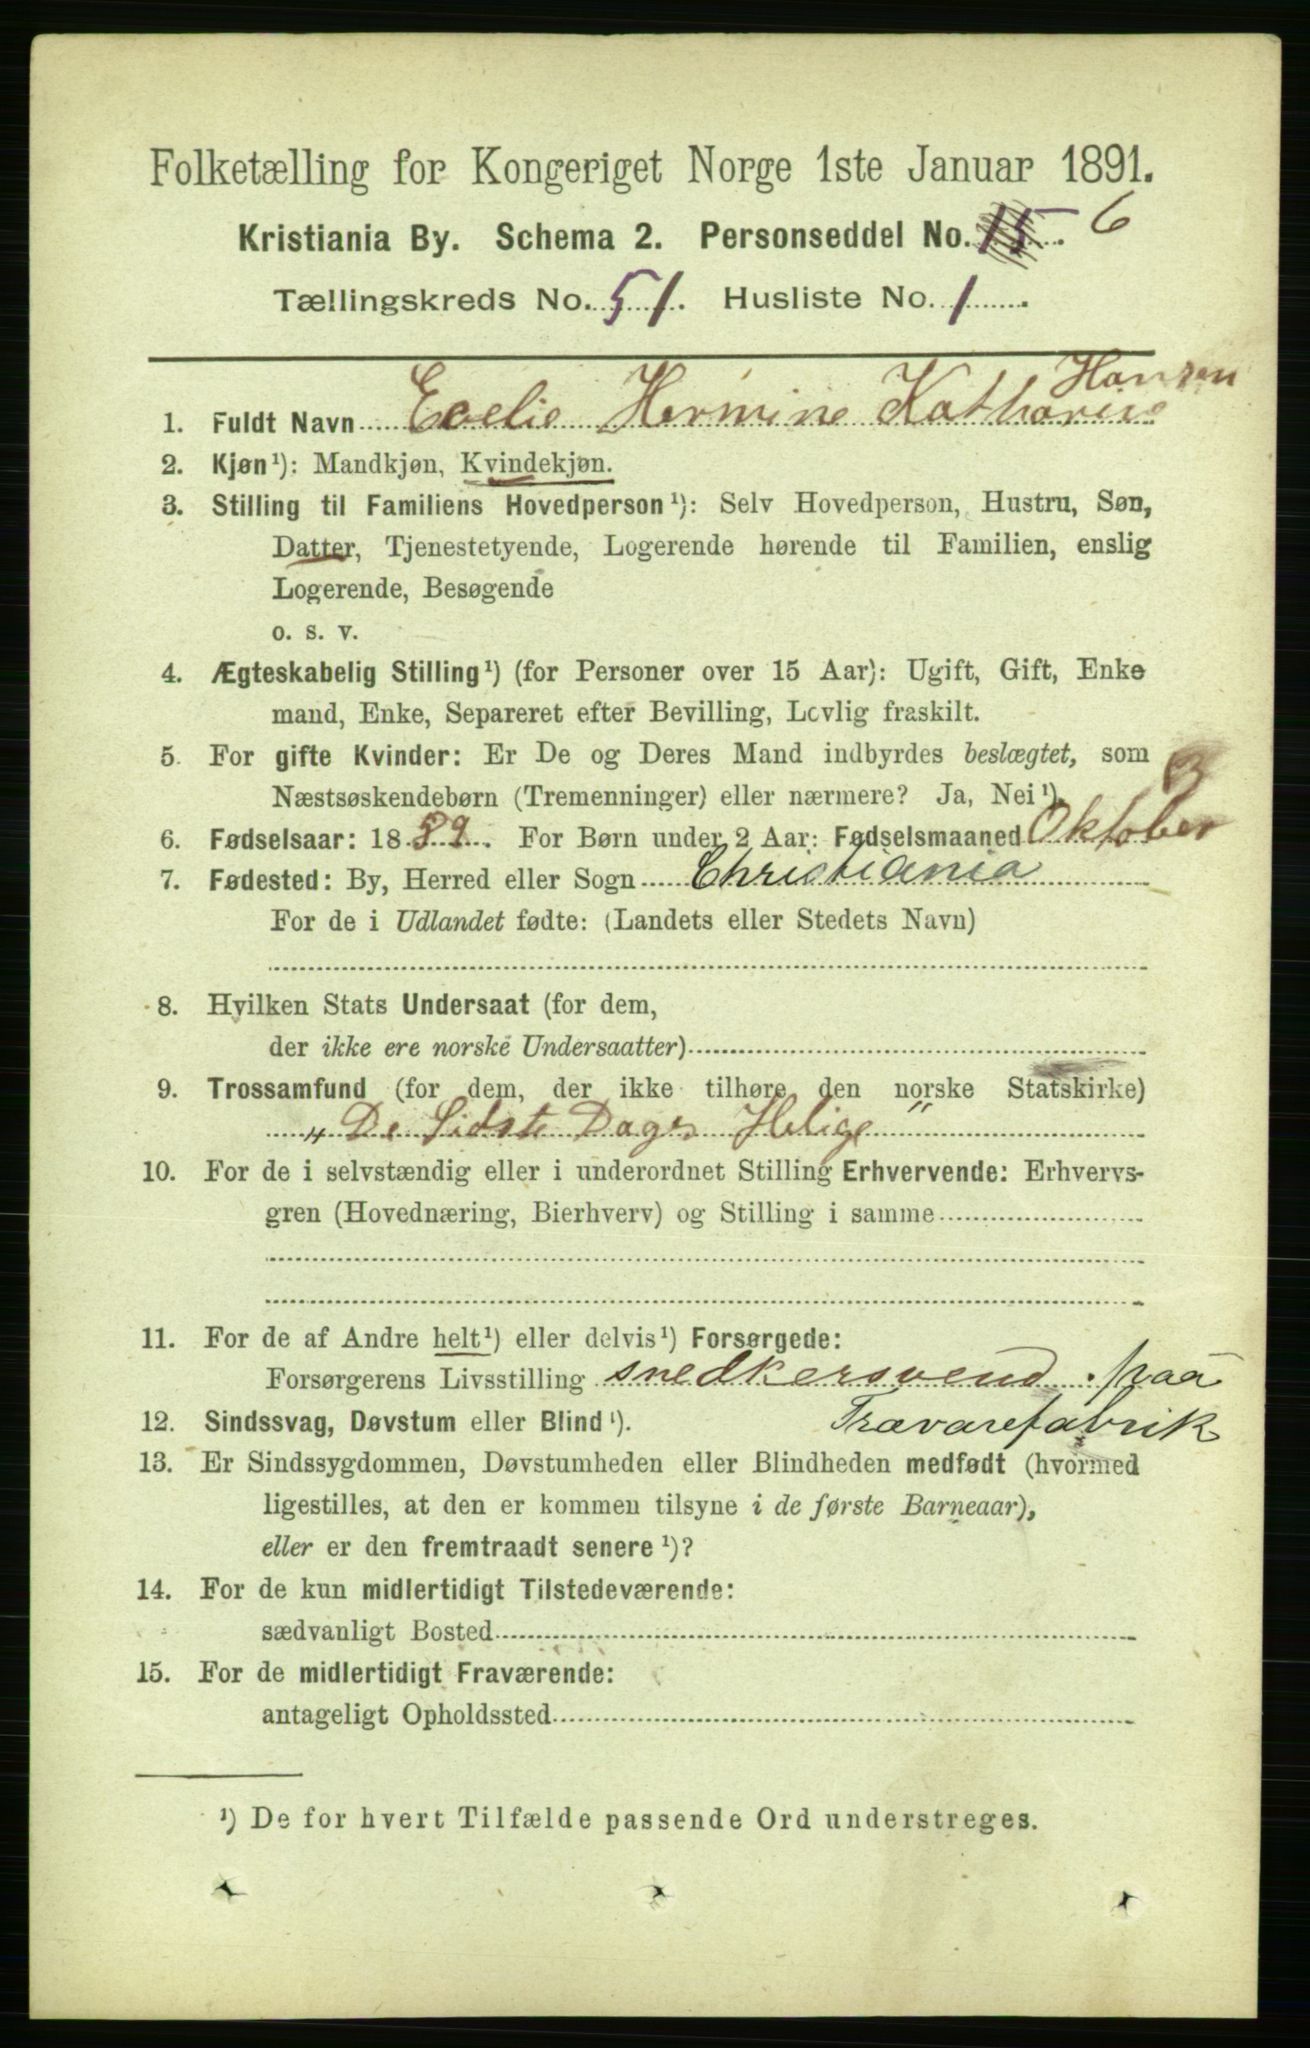 Folketælling for Kongeriget Norge 1ste Januar 1891.
Kristiania By. Schema 2. Personseddel No. 15 6
Tællingskreds No. 51. Husliste No. 1
Hansen
1. Fuldt Navn Evelie Hermine Katharine
2. Kjøn¹): Mandkjøn, Kvindekjøn.
3. Stilling til Familiens Hovedperson¹): Selv Hovedperson, Hustru, Søn,
Datter, Tjenestetyende, Logerende hørende til Familien, enslig
Logerende, Besøgende
o. s. v.
4. Ægteskabelig Stilling¹) (for Personer over 15 Aar): Ugift, Gift, Enke
mand, Enke, Separeret efter Bevilling, Lovlig fraskilt.
5. For gifte Kvinder: Er De og Deres Mand indbyrdes beslægtet, som
Næstsøskendebørn (Tremenninger) eller nærmere? Ja, Nei¹).
6. Fødselsaar: 1889. For Børn under 2 Aar: Fødselsmaaned Oktober
7. Fødested: By, Herred eller Sogn Christiania
For de i Udlandet fødte: (Landets eller Stedets Navn)
8. Hvilken Stats Undersaat (for dem,
der ikke ere norske Undersaatter)
9. Trossamfund (for dem, der ikke tilhøre den norske Statskirke)
„De Sidste Dages Helige"
10. For de i selvstændig eller i underordnet Stilling Erhvervende: Erhvervs-
gren (Hovednæring, Bierhverv) og Stilling i samme
11. For de af Andre helt¹) eller delvis¹) Forsørgede:
Forsørgerens Livsstilling snedkersvend paa
12. Sindssvag, Døvstum eller Blind¹). Trævarefabrik
13. Er Sindssygdommen, Døvstumheden eller Blindheden medfødt (hvormed
ligestilles, at den er kommen tilsyne i de første Barneaar),
eller er den fremtraadt senere¹)?
14. For de kun midlertidigt Tilstedeværende:
sædvanligt Bosted
15. For de midlertidigt Fraværende:
antageligt Opholdssted
¹) De for hvert Tilfælde passende Ord understreges.